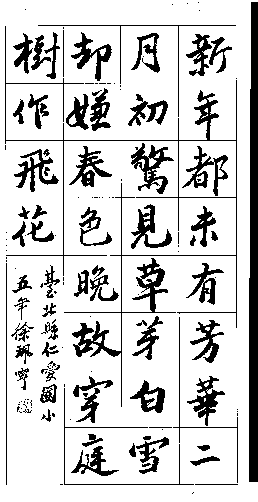 新年都未有芳華二
月初驚見草芽白雪
却嫌春色晚故穿庭
樹作飛花
臺北縣仁愛國小
五年徐珮寧